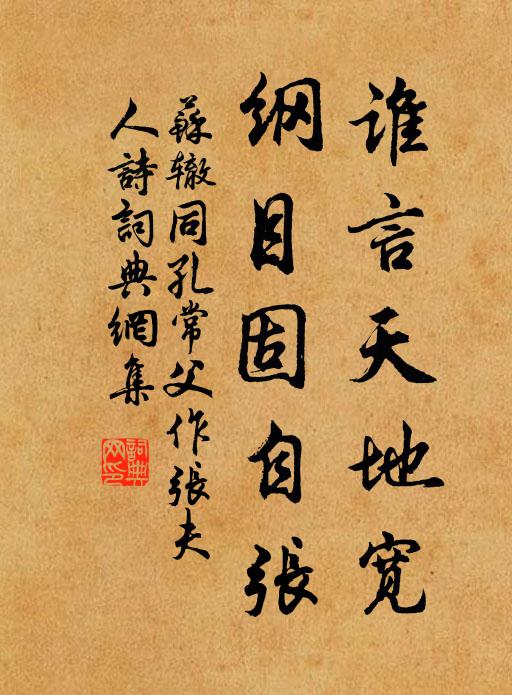 谁言天地宽
纲目固自張
蘇辙同孔常父作張夫
人詩詞典網集
詞典
网印